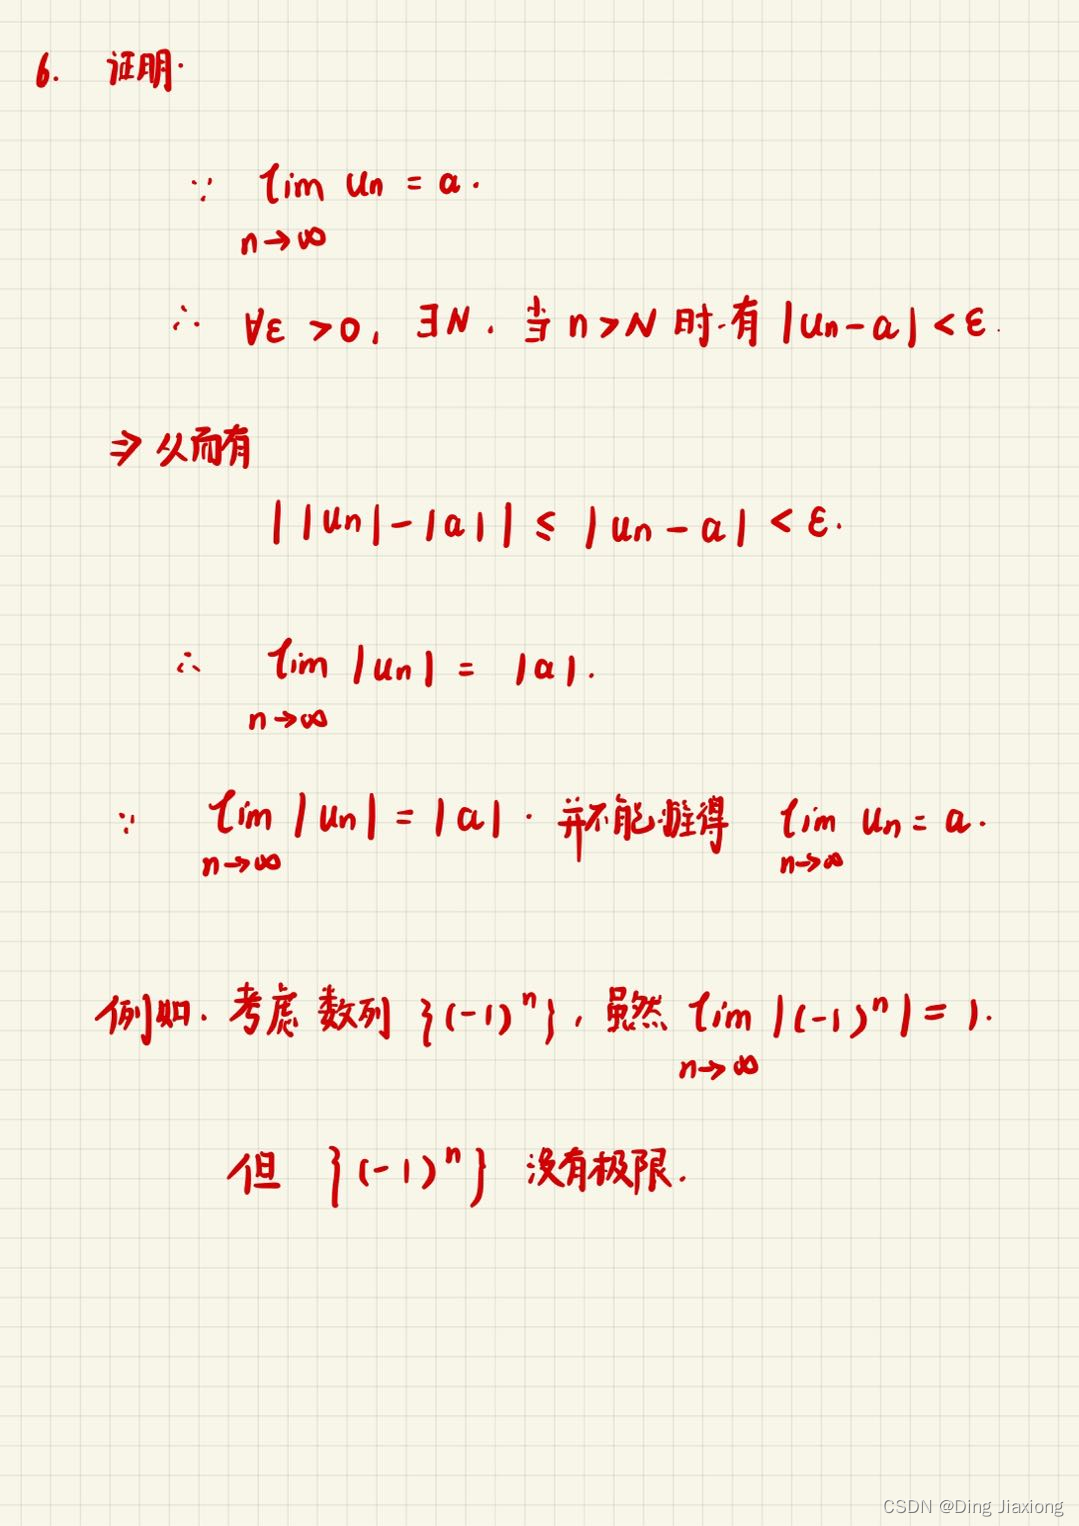 6. 证明.
∵ lim uₙ = a.
n→∞
∴ ∀ε >0, ∃N, 当 n>N 时.有 |uₙ-a|<ε.
⇒ 从而有
||uₙ|-|a|| ≤ |uₙ-a| < ε.
∴ lim |uₙ| = |a|.
n→∞
∵ lim |uₙ| = |a|. 并不能推得 lim uₙ = a.
n→∞ n→∞
例如. 考虑 数列 {(-1)ⁿ}, 虽然 lim |(-1)ⁿ| = 1.
n→∞
但 {(-1)ⁿ} 没有极限.
CSDN @Ding Jiaxiong